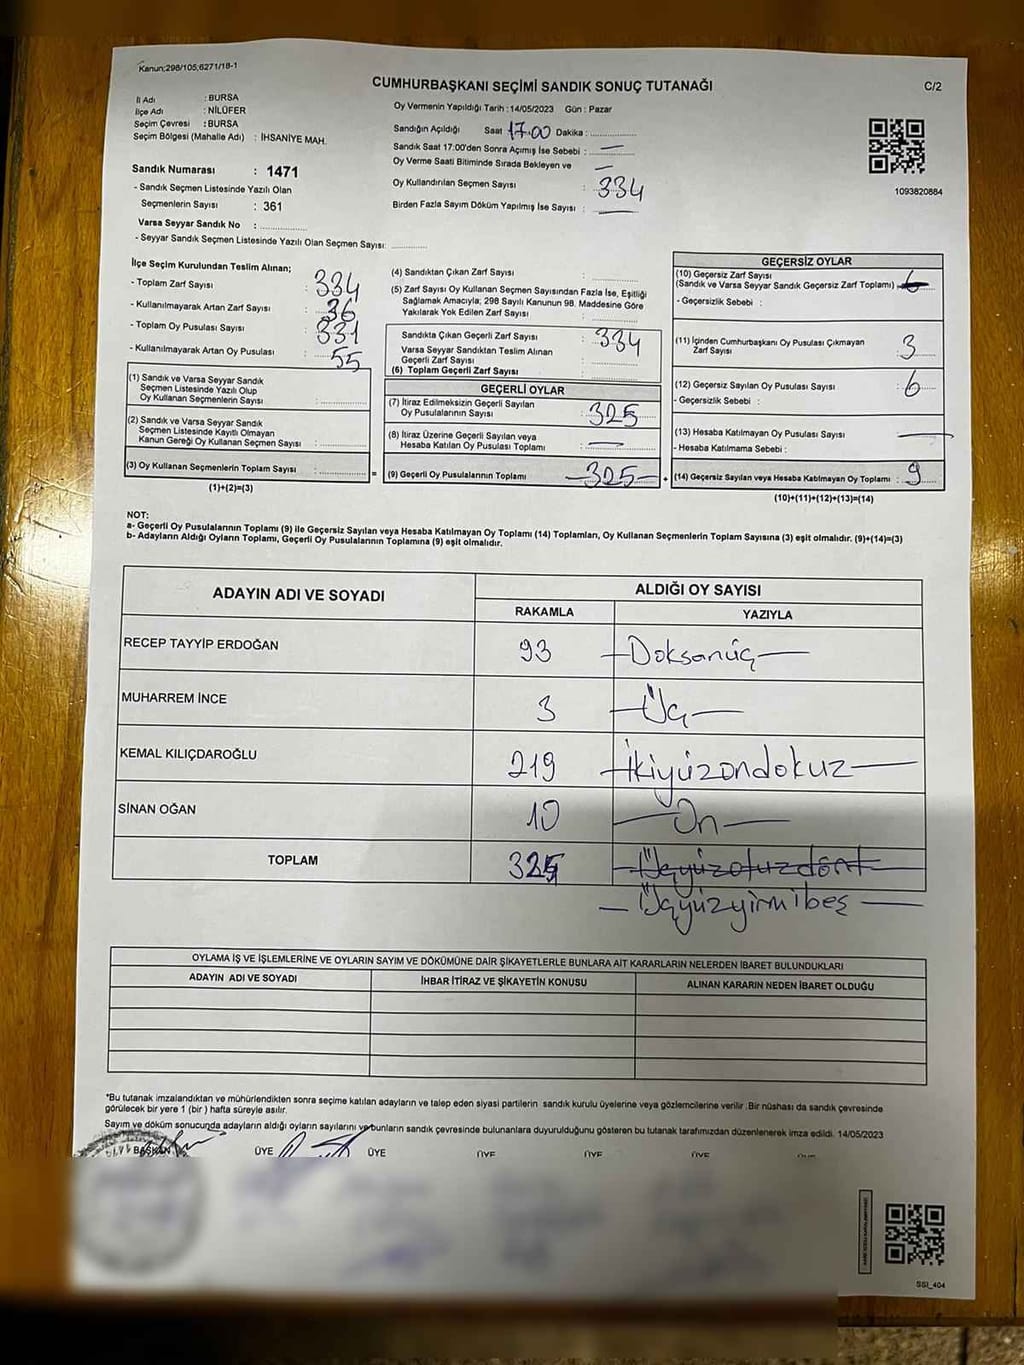 Kanun;298/105;6271/18-1
CUMHURBAŞKANI SEÇİMİ SANDIK SONUÇ TUTANAĞI
C/2
İl Adı : BURSA
İlçe Adı : NİLÜFER
Seçim Çevresi : BURSA
Seçim Bölgesi (Mahalle Adı) : İHSANİYE MAH.
Sandık Numarası : 1471
- Sandık Seçmen Listesinde Yazılı Olan
Seçmenlerin Sayısı : 361
Varsa Seyyar Sandık No : ..............
- Seyyar Sandık Seçmen Listesinde Yazılı Olan Seçmen Sayısı: ............
Oy Vermenin Yapıldığı Tarih : 14/05/2023 Gün : Pazar
Sandığın Açıldığı Saat 17.00 Dakika : ..............
Sandık Saat 17.00'den Sonra Açımış İse Sebebi : —
Oy Verme Saati Bitiminde Sırada Bekleyen ve —
Oy Kullandırılan Seçmen Sayısı : 334
Birden Fazla Sayım Döküm Yapılmış İse Sayısı : —
1093820884
İlçe Seçim Kurulundan Teslim Alınan;
- Toplam Zarf Sayısı : 334
- Kullanılmayarak Artan Zarf Sayısı : 36
- Toplam Oy Pusulası Sayısı : 331
- Kullanılmayarak Artan Oy Pusulası : 55
(1) Sandık ve Varsa Seyyar Sandık
Seçmen Listesinde Yazılı Olup
Oy Kullanan Seçmenlerin Sayısı : ............
(2) Sandık ve Varsa Seyyar Sandık
Seçmen Listesinde Kayıtlı Olmayan
Kanun Gereği Oy Kullanan Seçmen Sayısı : ............
(3) Oy Kullanan Seçmenlerin Toplam Sayısı : ............
(1)+(2)=(3)
(4) Sandıktan Çıkan Zarf Sayısı : ............
(5) Zarf Sayısı Oy Kullanan Seçmen Sayısından Fazla İse, Eşitliği
Sağlamak Amacıyla; 298 Sayılı Kanunun 98. Maddesine Göre
Yakılarak Yok Edilen Zarf Sayısı : ............
Sandıkta Çıkan Geçerli Zarf Sayısı : 334
Varsa Seyyar Sandıktan Teslim Alınan
Geçerli Zarf Sayısı : ............
(6) Toplam Geçerli Zarf Sayısı : ............
GEÇERLİ OYLAR
(7) İtiraz Edilmeksizin Geçerli Sayılan
Oy Pusulalarının Sayısı : 325
(8) İtiraz Üzerine Geçerli Sayılan veya
Hesaba Katılan Oy Pusulası Toplamı : —
= (9) Geçerli Oy Pusulalarının Toplamı —325—
GEÇERSİZ OYLAR
(10) Geçersiz Zarf Sayısı
(Sandık ve Varsa Seyyar Sandık Geçersiz Zarf Toplamı) : 6
- Geçersizlik Sebebi :
(11) İçinden Cumhurbaşkanı Oy Pusulası Çıkmayan
Zarf Sayısı : 3
(12) Geçersiz Sayılan Oy Pusulası Sayısı : 6
- Geçersizlik Sebebi :
(13) Hesaba Katılmayan Oy Pusulası Sayısı : —
- Hesaba Katılmama Sebebi :
+ (14) Geçersiz Sayılan veya Hesaba Katılmayan Oy Toplamı : 9
(10)+(11)+(12)+(13)=(14)
NOT:
a- Geçerli Oy Pusulalarının Toplamı (9) ile Geçersiz Sayılan veya Hesaba Katılmayan Oy Toplamı (14) Toplamları, Oy Kullanan Seçmenlerin Toplam Sayısına (3) eşit olmalıdır. (9)+(14)=(3)
b- Adayların Aldığı Oyların Toplamı, Geçerli Oy Pusulalarının Toplamına (9) eşit olmalıdır.
ADAYIN ADI VE SOYADI
ALDIĞI OY SAYISI
RAKAMLA YAZIYLA
RECEP TAYYİP ERDOĞAN 93 —Doksanüç—
MUHARREM İNCE 3 —Üç—
KEMAL KILIÇDAROĞLU 219 —İkiyüzondokuz—
SİNAN OĞAN 10 —On—
TOPLAM 325 —Üçyüzotuzdört—
—Üçyüzyirmibeş—
OYLAMA İŞ VE İŞLEMLERİNE VE OYLARIN SAYIM VE DÖKÜMÜNE DAİR ŞİKAYETLERLE BUNLARA AİT KARARLARIN NELERDEN İBARET BULUNDUKLARI
ADAYIN ADI VE SOYADI İHBAR İTİRAZ VE ŞİKAYETİN KONUSU ALINAN KARARIN NEDEN İBARET OLDUĞU
*Bu tutanak imzalandıktan ve mühürlendikten sonra seçime katılan adayların ve talep eden siyasi partilerin sandık kurulu üyelerine veya gözlemcilerine verilir. Bir nüshası da sandık çevresinde
görülecek bir yere 1 (bir) hafta süreyle asılır.
Sayım ve döküm sonucunda adayların aldığı oyların sayılarını ve bunların sandık çevresinde bulunanlara duyurulduğunu gösteren bu tutanak tarafımızdan düzenlenerek imza edildi. 14/05/2023
BAŞKAN ÜYE ÜYE ÜYE ÜYE ÜYE ÜYE
SSI_404